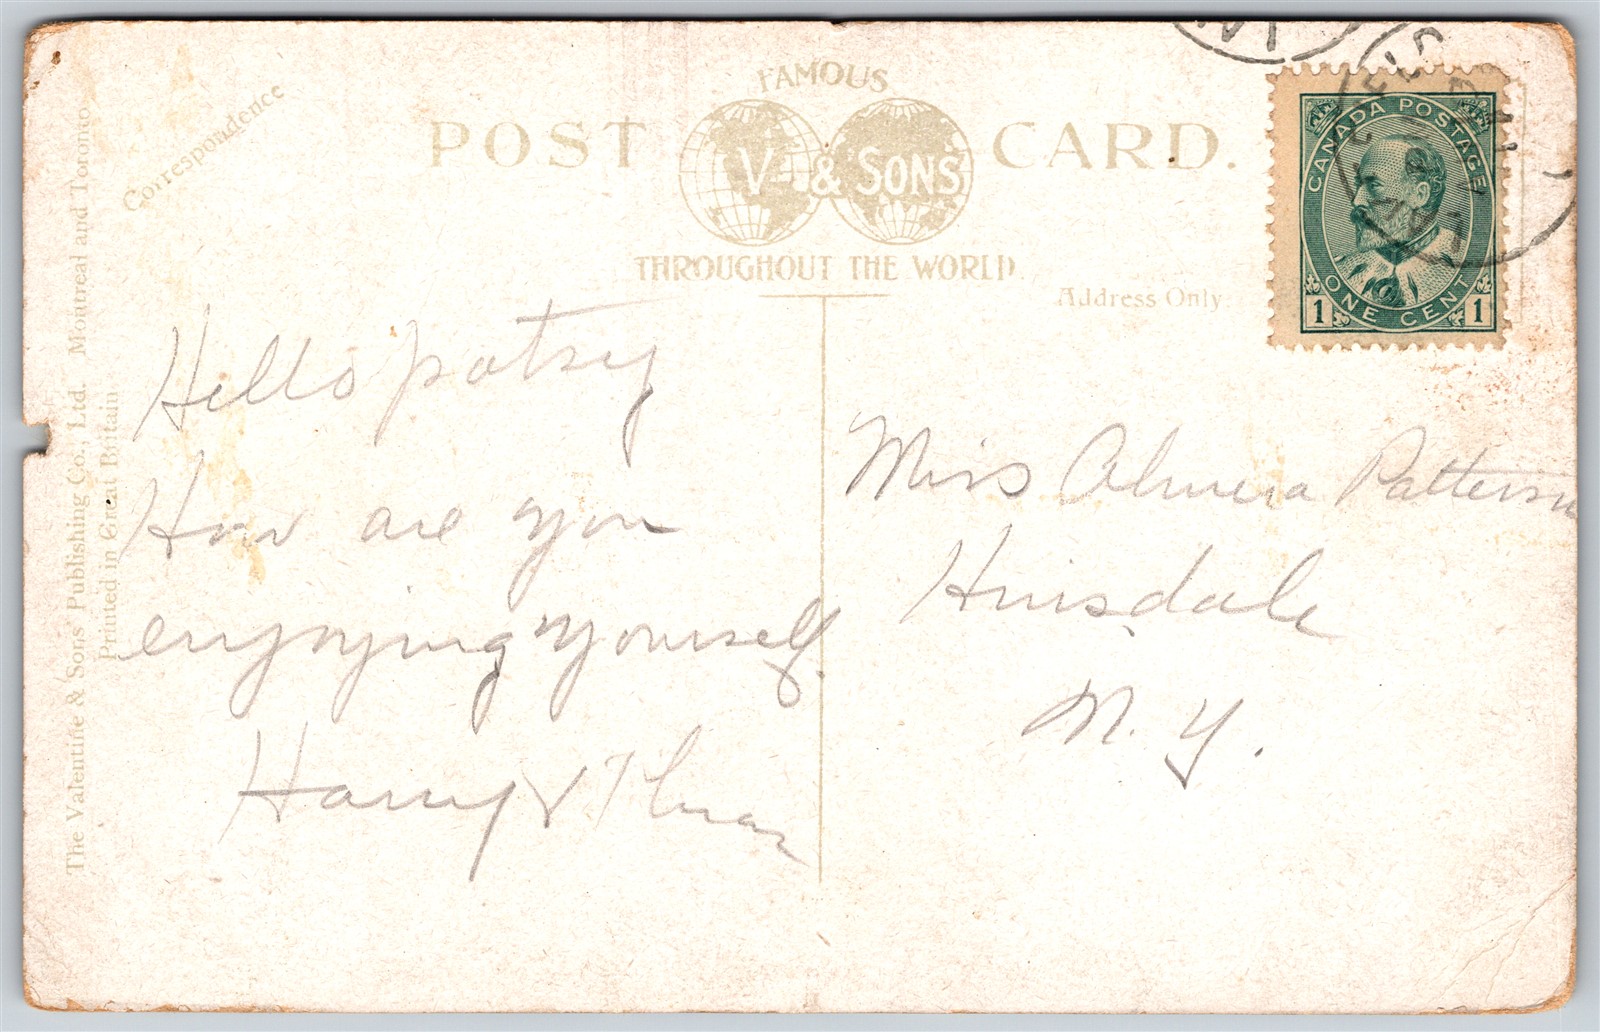 The Valentine & Sons' Publishing Co., Ltd. Montreal and Toronto
Printed in Great Britain
Correspondence
FAMOUS
POST CARD.
V. & SONS
THROUGHOUT THE WORLD
Address Only
CANADA POSTAGE
ONE CENT
1 1
Hello patsy
How are you
enjoying yourself.
Harry &
Miss Almera Patterson
Hinsdale
N. Y.